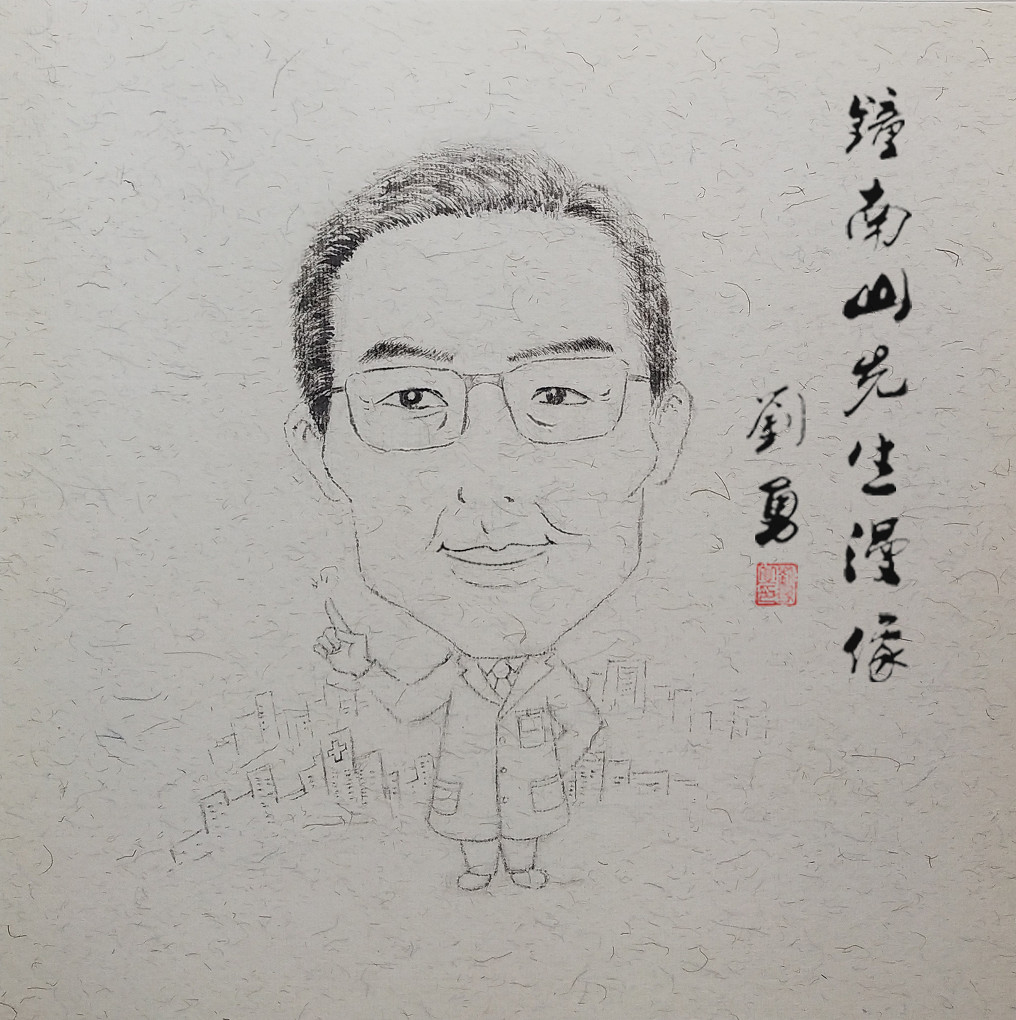 鐘南山先生漫像
劉勇